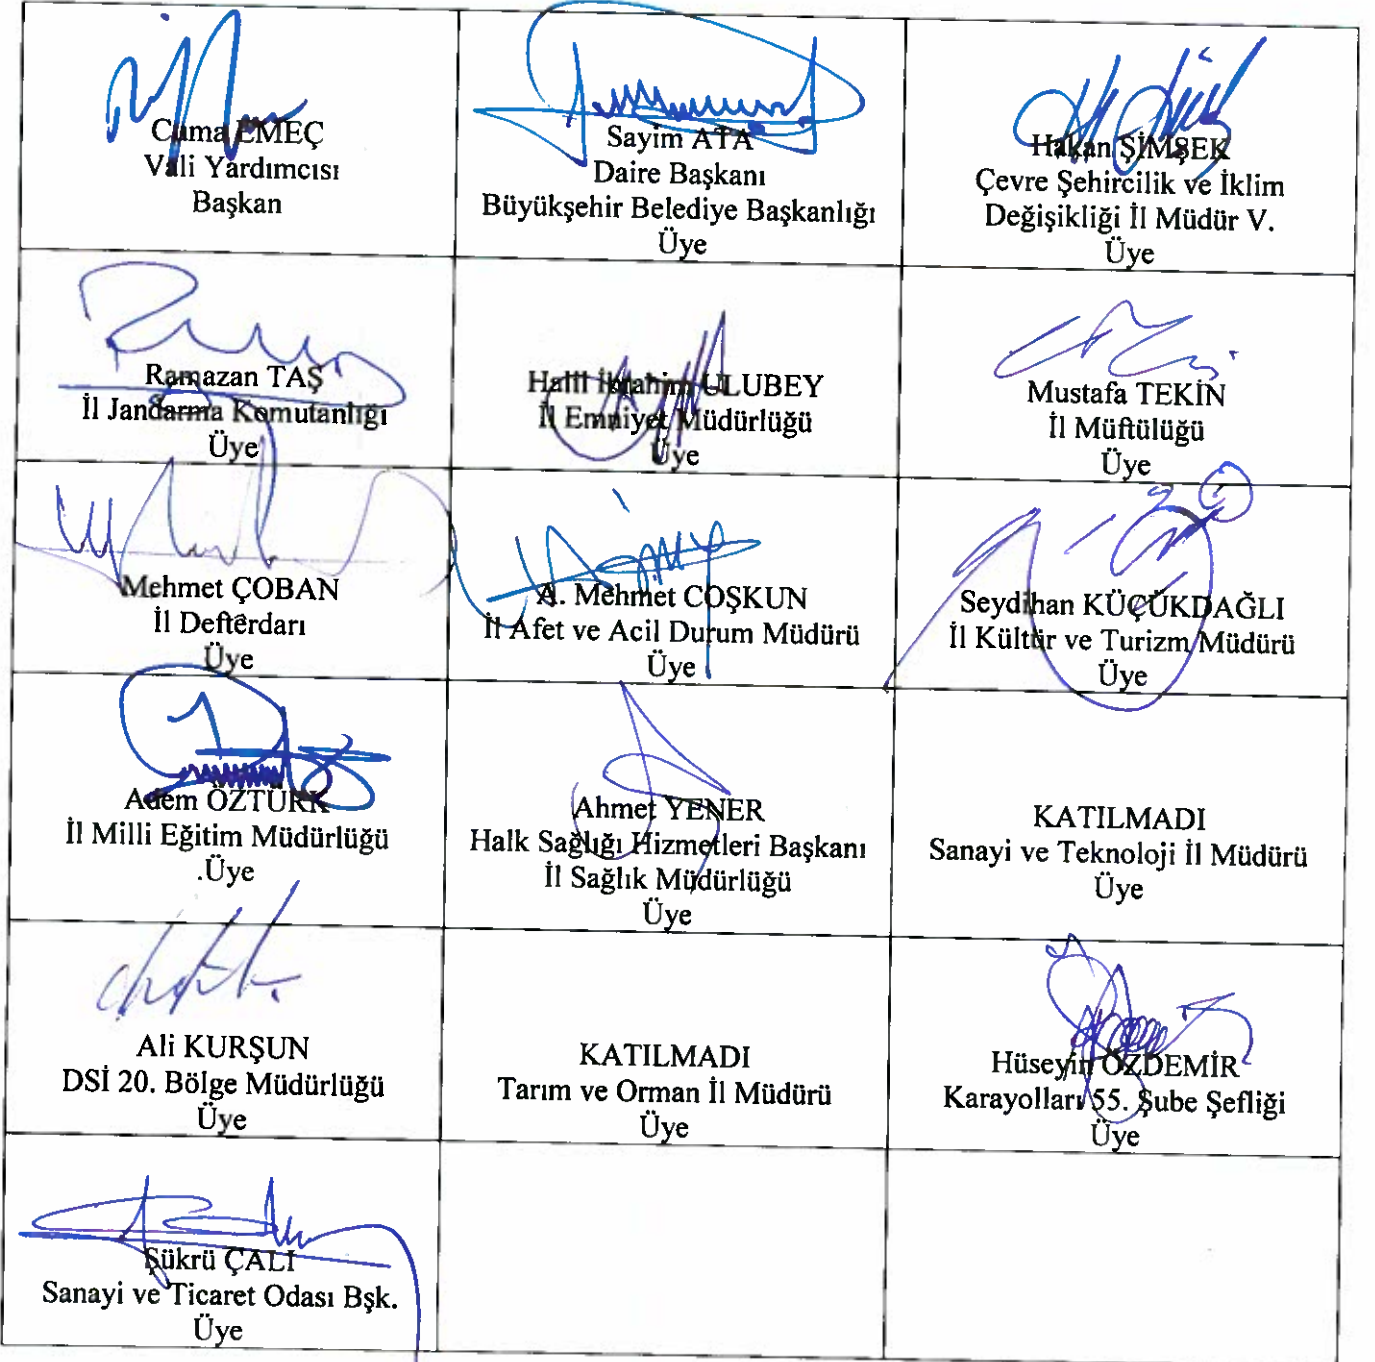 Cuma EMEÇ
Vali Yardımcısı
Başkan
Sayim ATA
Daire Başkanı
Büyükşehir Belediye Başkanlığı
Üye
Hakan ŞİMŞEK
Çevre Şehircilik ve İklim
Değişikliği İl Müdür V.
Üye
Ramazan TAŞ
İl Jandarma Komutanlığı
Üye
Halil İbrahim ULUBEY
İl Emniyet Müdürlüğü
Üye
Mustafa TEKİN
İl Müftülüğü
Üye
Mehmet ÇOBAN
İl Defterdarı
Üye
A. Mehmet COŞKUN
İl Afet ve Acil Durum Müdürü
Üye
Seydihan KÜÇÜKDAĞLI
İl Kültür ve Turizm Müdürü
Üye
Adem ÖZTÜRK
İl Milli Eğitim Müdürlüğü
.Üye
Ahmet YENER
Halk Sağlığı Hizmetleri Başkanı
İl Sağlık Müdürlüğü
Üye
KATILMADI
Sanayi ve Teknoloji İl Müdürü
Üye
Ali KURŞUN
DSİ 20. Bölge Müdürlüğü
Üye
KATILMADI
Tarım ve Orman İl Müdürü
Üye
Hüseyin ÖZDEMİR
Karayolları 55. Şube Şefliği
Üye
Şükrü ÇALI
Sanayi ve Ticaret Odası Bşk.
Üye